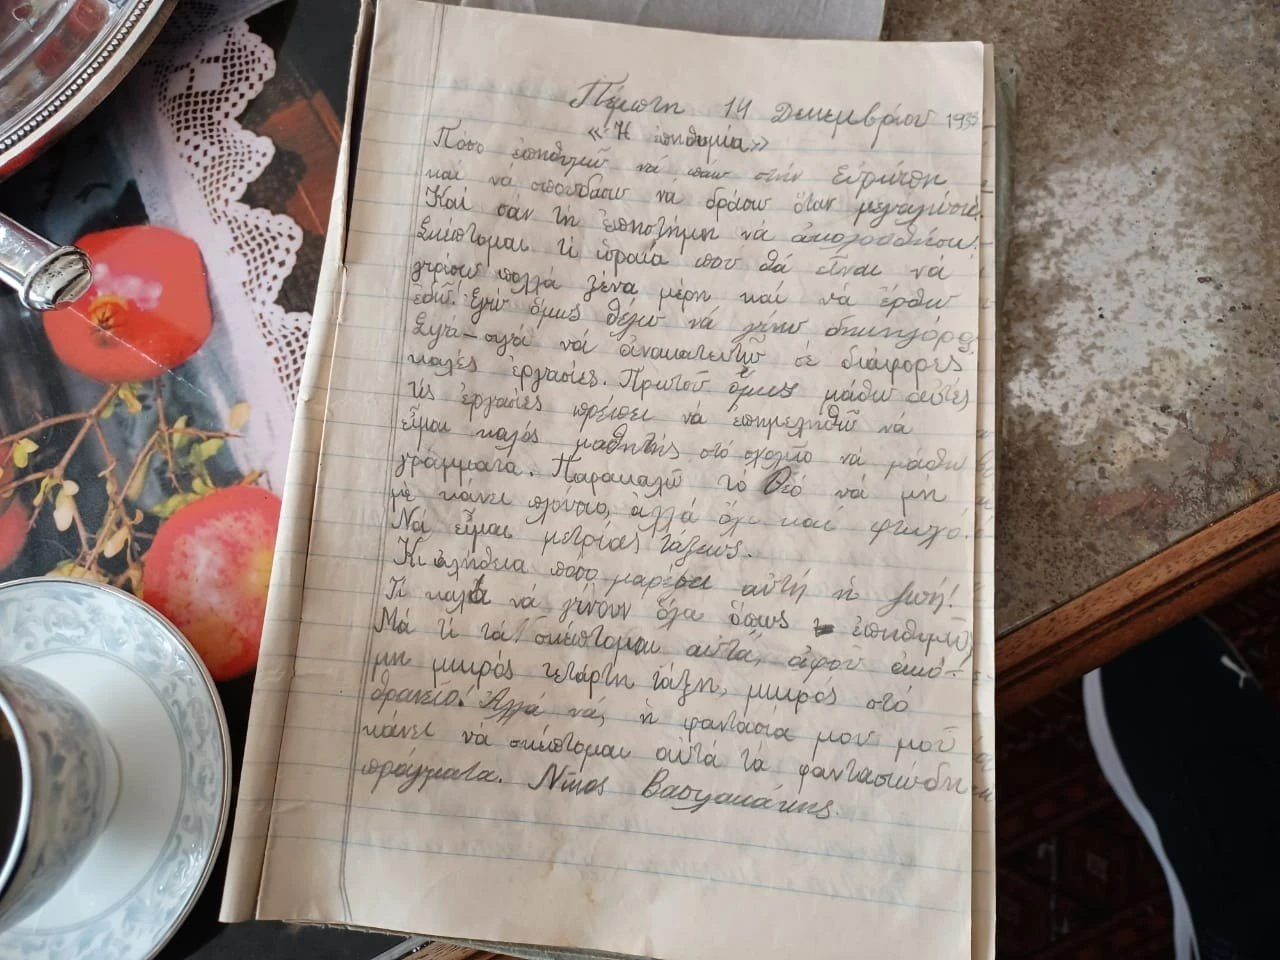 Πέμπτη 14 Δεκεμβρίου
«Ἡ ἐπιθυμία»
Πόσο ἐπιθυμῶ νά πάω στήν Εὐρώπη
καί νά σπουδάσω να δράσω ὅταν μεγαλώσω.
Καί σάν τή ἐπιστήμη νά ἀκολουθήσω!
Σκέπτομαι τί ὡραία που θά εἶναι νά
γυρίσω πολλά ξένα μέρη καί νά ἔρθω
ἐδῶ. Ἐγώ ὅμως θέλω νά γίνω δικηγόρος
Σιγά-σιγά νά ἀνακατευτῶ σέ διάφορες
καλές ἐργασίες. Πρωτοῦ ὅμως μάθω αὐτές
τίς ἐργασίες πρέπει να ἐπιμεληθῶ νά
εἶμαι καλός μαθητής στό σχολεῖο να μάθω
γράμματα. Παρακαλῶ τό Θεό νά μή
μέ κάνει πλούσιο, ἀλλά ὄχι καί φτωχό.
Νά εἶμαι μετρίας τάξεως.
Κι ἀλήθεια ποσο μαρέσει αὐτή ἡ ζωή!
Τί καλά νά γίνουν ὅλα ὅπως ἐπιθυμῶ,
Μά τί τά σκέπτομαι αὐτά, ἀφοῦ ἀκό-
μη μικρός τετάρτη τάξη, μικρός στό
θρανείο! Ἀλλά νά, ἡ φαντασία μου μοῦ
κάνει νά σκέπτομαι αὐτά τά φαντασιώδη
πράγματα. Νίκος Βασιλακάκης.